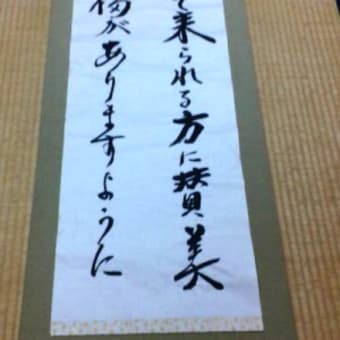 て来られる方に賛美
がありますように